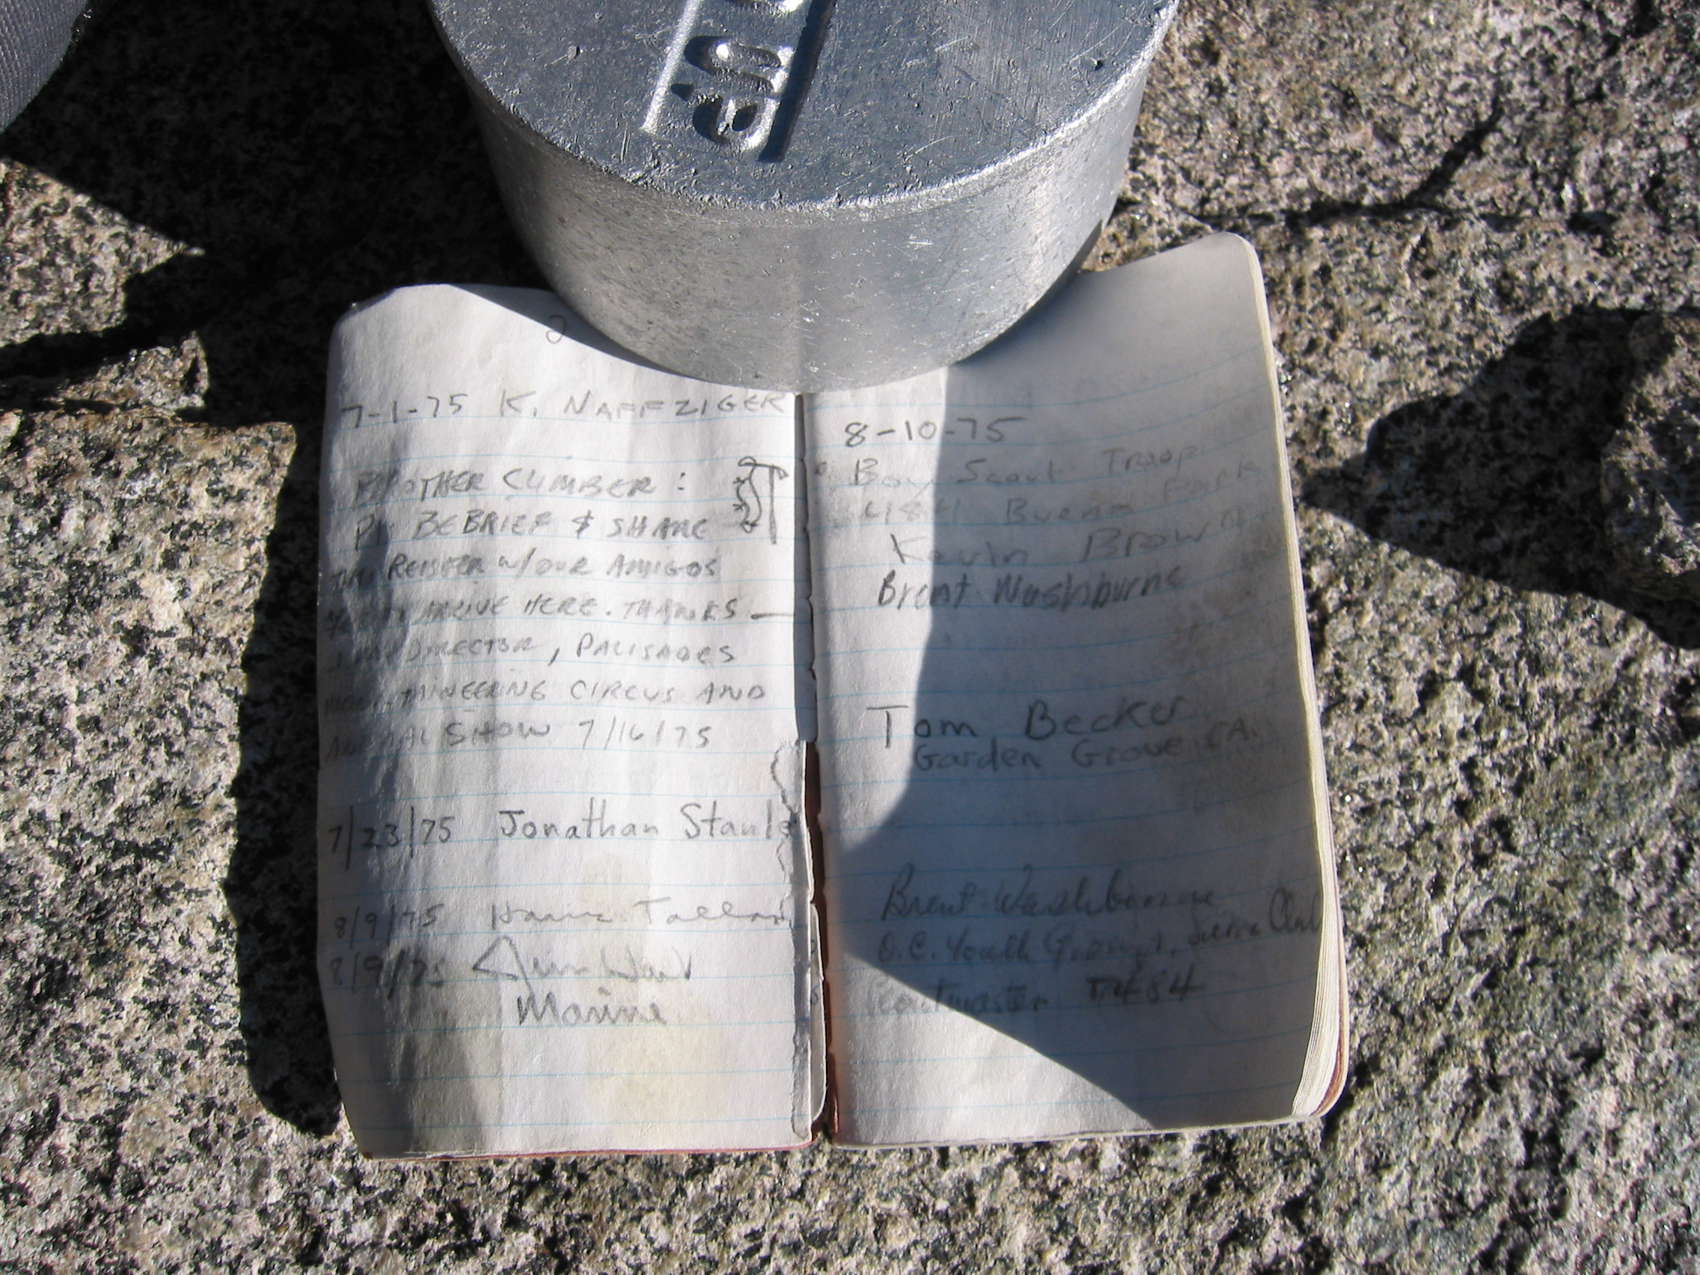 2
7-1-75 K. NAFFZIGER
BROTHER CLIMBER :
BE BRIEF & SHARE
REISTER W/OUR AMIGOS
ARRIVE HERE. THANKS —
DIRECTOR, PALISADES
CIRCUS AND
SHOW 7/16/75
7/23/75 Jonathan
8/9/75
8/9/75 Jim
Marine
8-10-75
Boy Scout Troop
484 Buena Park
Kevin Brown
Brent Washburne
Tom Becker
Garden Grove CA.
Brent Washburne
O.C. Youth
Scoutmaster T484